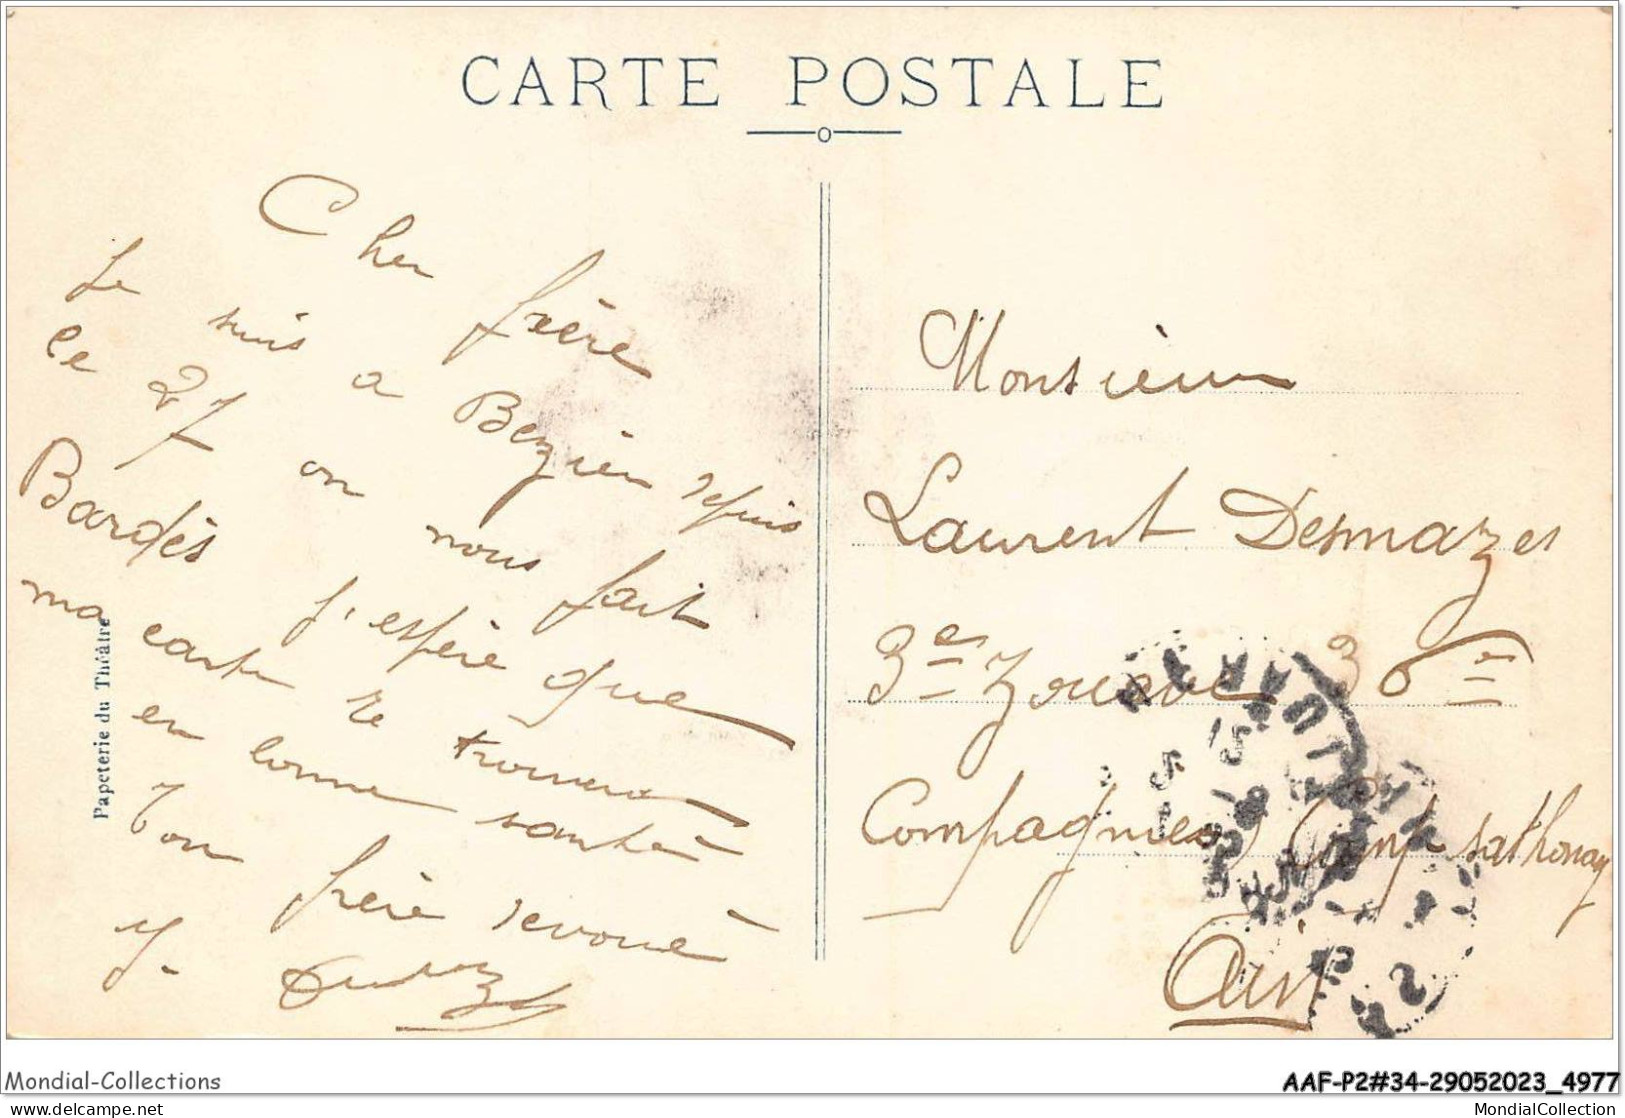 CARTE POSTALE
Cher frère
Je suis a Bezier depuis
le 27 on nous fait
Bardès j'espère que
ma carte te trouvera
en bonne santé
Ton frère devoué
Papeterie du Théâtre
Monsieur
Laurent Desmazes
3e Zouave 36e
Compagnies Camp sathonay
Ain
Mondial-Collections
AAF-P2#34-29052023_4977
delcampe.net
MondialCollection